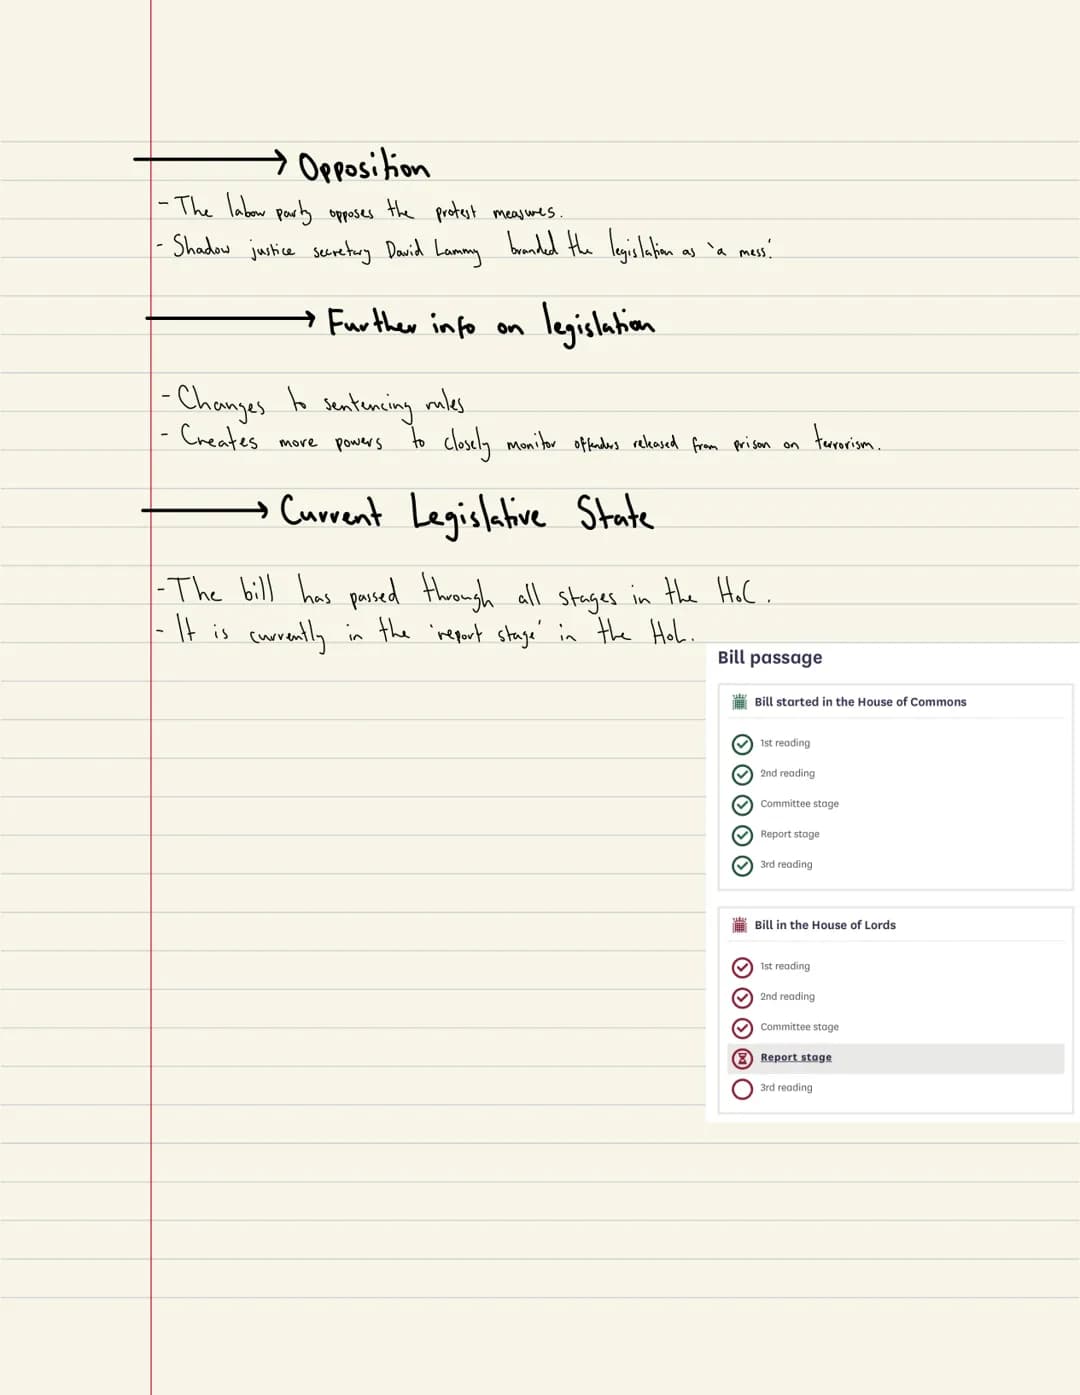 Opposition
- The labour party opposes the protest measures.
- Shadow justice secretary David Lammy branded the legislation as 'a mess.'
Further info on legislation
- Changes to sentencing rules
- Creates more powers to closely monitor offenders released from prison on terrorism.
Current Legislative State
- The bill has passed through all stages in the HoC.
- It is currently in the 'report stage' in the HoL.
Bill passage
Bill started in the House of Commons
1st reading
2nd reading
Committee stage
Report stage
3rd reading
Bill in the House of Lords
1st reading
2nd reading
Committee stage
Report stage
3rd reading